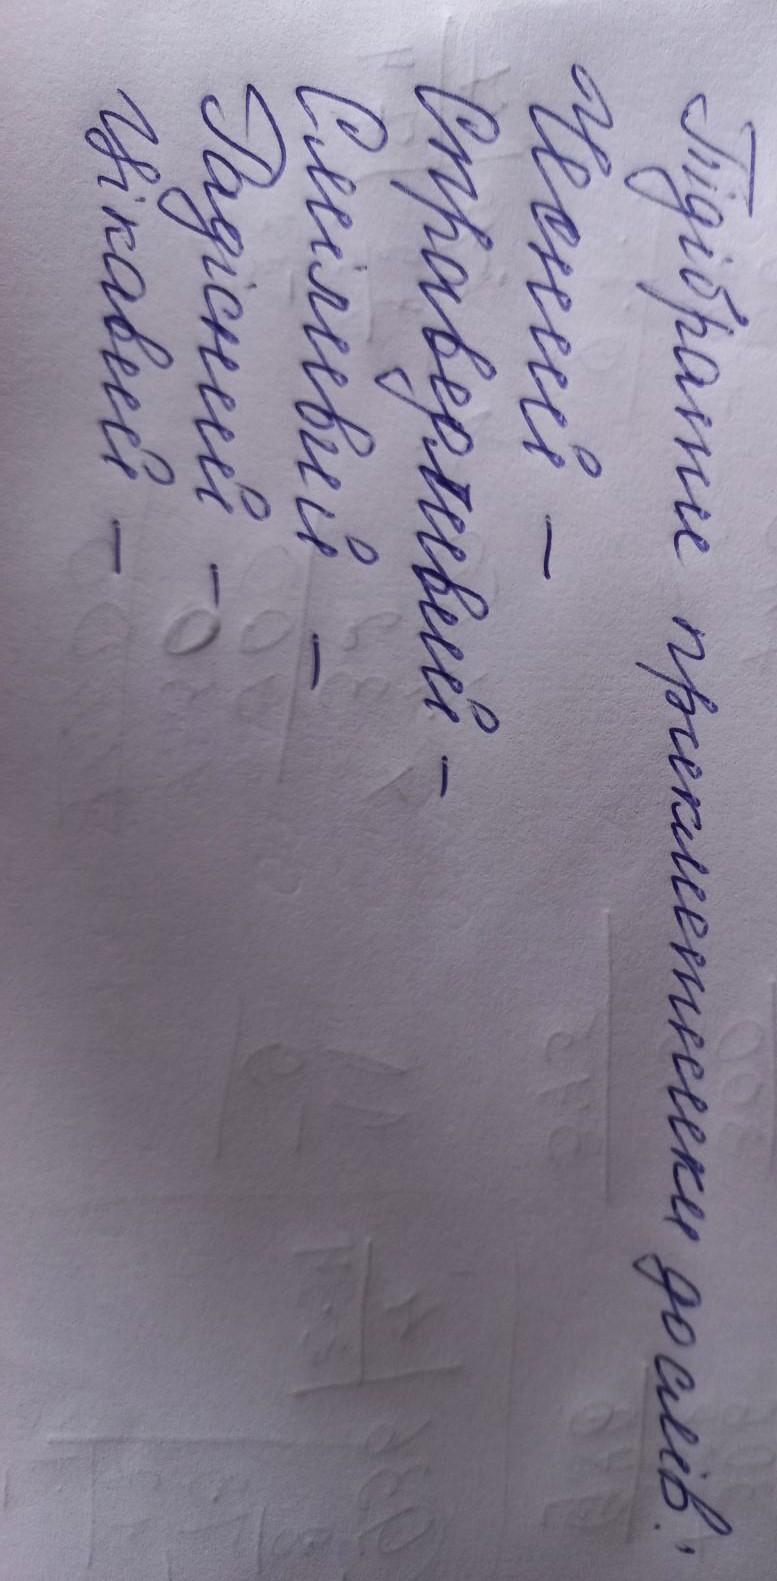 Підібрати прикметники до слів:
Чесний -
Справедливий -
Сміливий -
Радісний -
Цікавий -